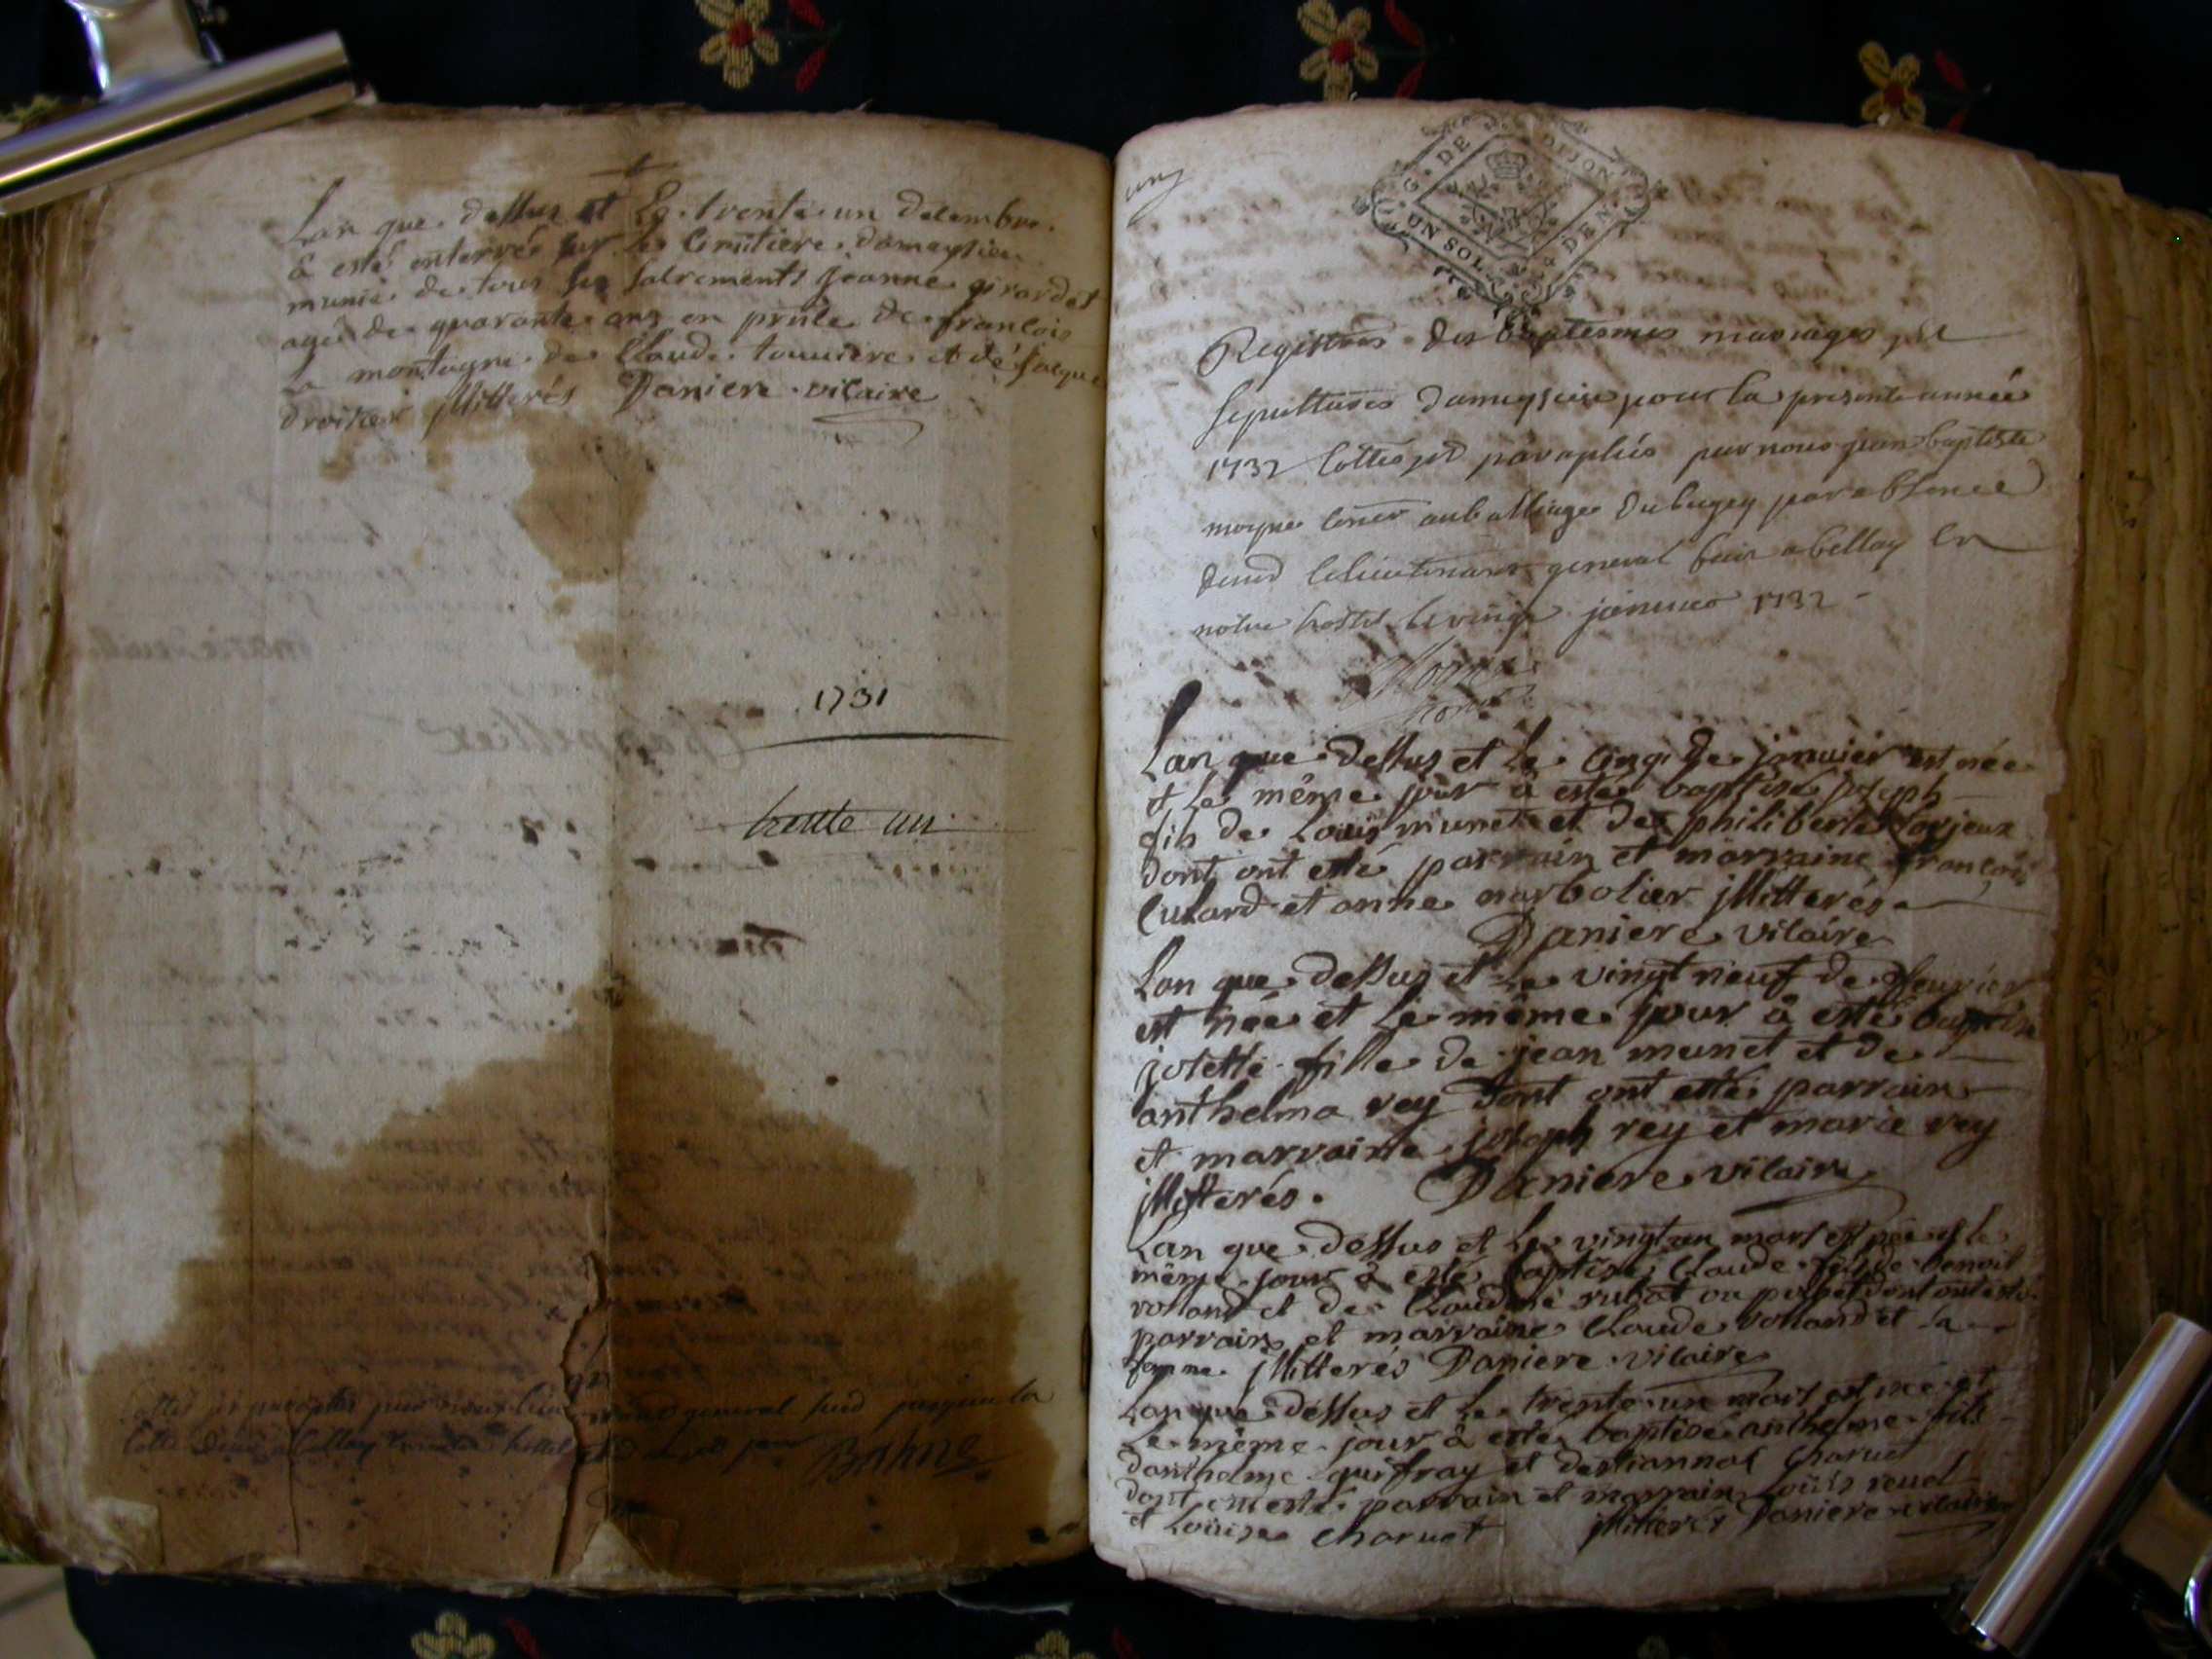 Lan que dessus et Le trente un décembre
à esté enterrée sur Le Cimitiere dameysieu
munie de tous ses sacrements jeanne girardet
agée de quarante ans en présence de francois
La montagne de Claude et de jacque
droitier jllitterés Daniere vicaire
1731
trente un
general
Bahns
G. DE DIJON
UN SOL DEN.
Registres des baptesmes mariages et
sepultures dameysieu pour la presente année
1732 Cottes et paraphés par nous jean baptiste
moyne au balliage du bugey par absence
de mr le lieutenant general fait a bellay en
notre hostel le vingt janvier 1732
Lan que dessus et Le cinq de janvier est née
et Le même jour à esté baptisé joseph
fils de Louis munet et de philiberte
dont ont esté parrain et marraine francois
Cusard et anne narbolier jllitterés
Daniere vicaire
Lan que dessus et Le vingt neuf de feurier
est née et Le même jour à esté baptisé
josette fille de jean munet et de
anthelma rey dont ont esté parrain
et marraine joseph rey et marie rey
jllitterés. Daniere vicaire
Lan que dessus et Le vingt un mars est née et le
même jour à esté baptisé Claude fils de benoit
volland et de Claudine rubat ou dont ont esté
parrain et marraine Claude volland et sa
femme jllitterés Daniere vicaire
Lan que dessus et Le trente un mars est née et
Le même jour à esté baptisé anthelme fils
danthelme guifray et charuet
dont ont esté parrain et marraine Louis reuel
et Louise charuet jllitterés Daniere vicaire